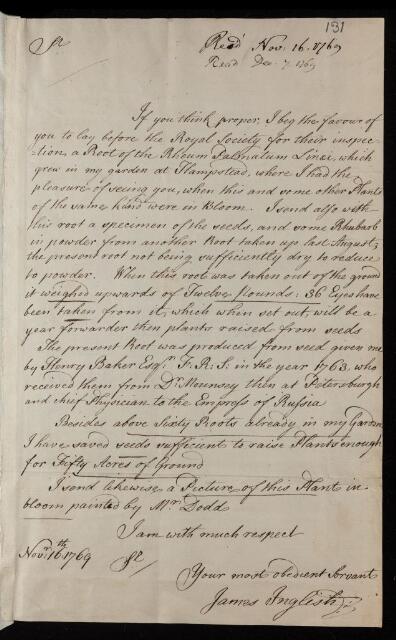 131
Sr
Recd Nov. 16. 1769
Read Dec. 7. 1769
If you think proper, I beg the favour of
you to lay before the Royal Society for their inspec
-tion, a Root of the Rheum Palmatum Linæi, which
grew in my garden at Hampstead, where I had the
pleasure of seeing you, when this and some other Plants
of the same kind were in bloom. I send also with
this root a specimen of the seeds, and some Rhubarb
in powder from another Root taken up last August;
the present root not being sufficiently dry to reduce
to powder. When this root was taken out of the ground
it weighed upwards of Twelve Pounds: 36 Eyes have
been taken from it, which when set out, will be a
year forwarder then plants raised from seeds
The present Root was produced from seed given me
by Henry Baker Esqr. F. R. S. in the year 1763. who
received them from Dr. Mounsey then at Petersburgh
and chief Physician to the Empress of Russia
Besides above Sixty Roots already in my Garden
I have saved seeds sufficient to raise Plants enough
for Fifty Acres of Ground
I send likewise a Picture of this Plant in
bloom painted by Mr. Dodd
I am with much respect
Novr. 16th. 1769 Sr
Your most obedient Servant
James Inglish